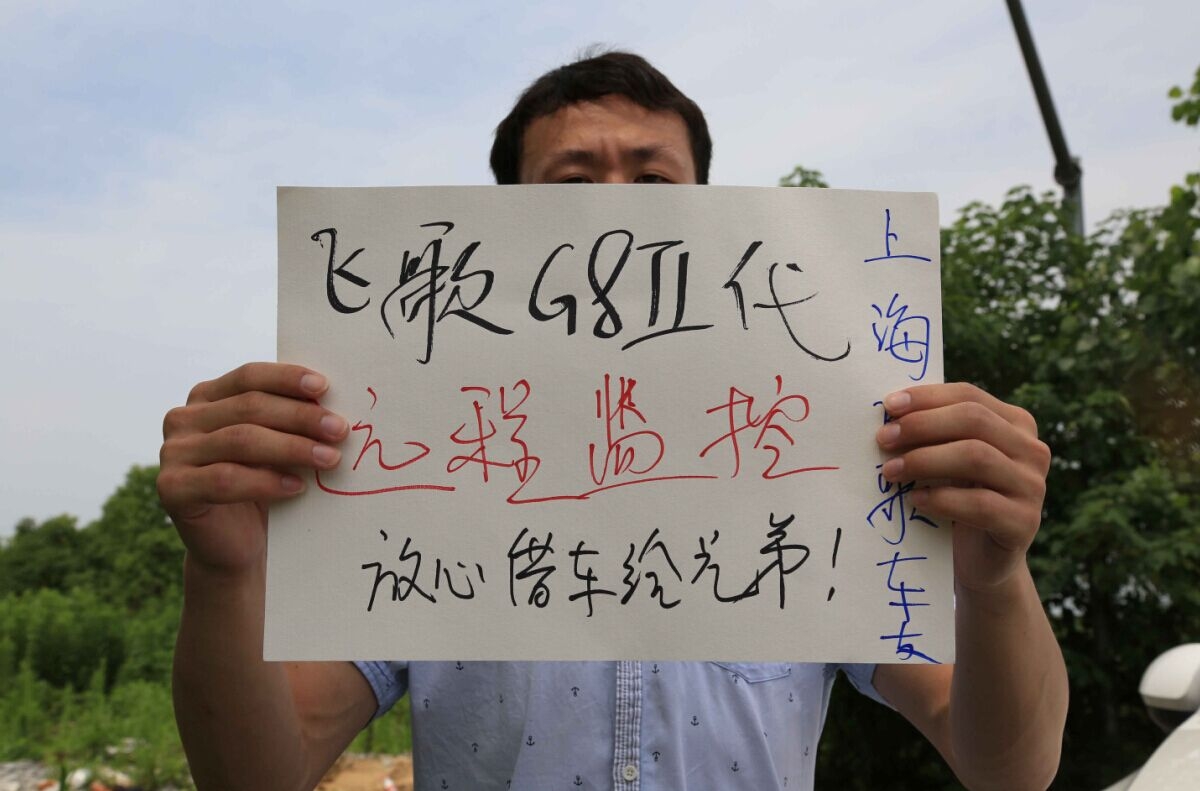 飞歌G8Ⅱ代
远程监控
放心借车给兄弟!
上海飞歌车友